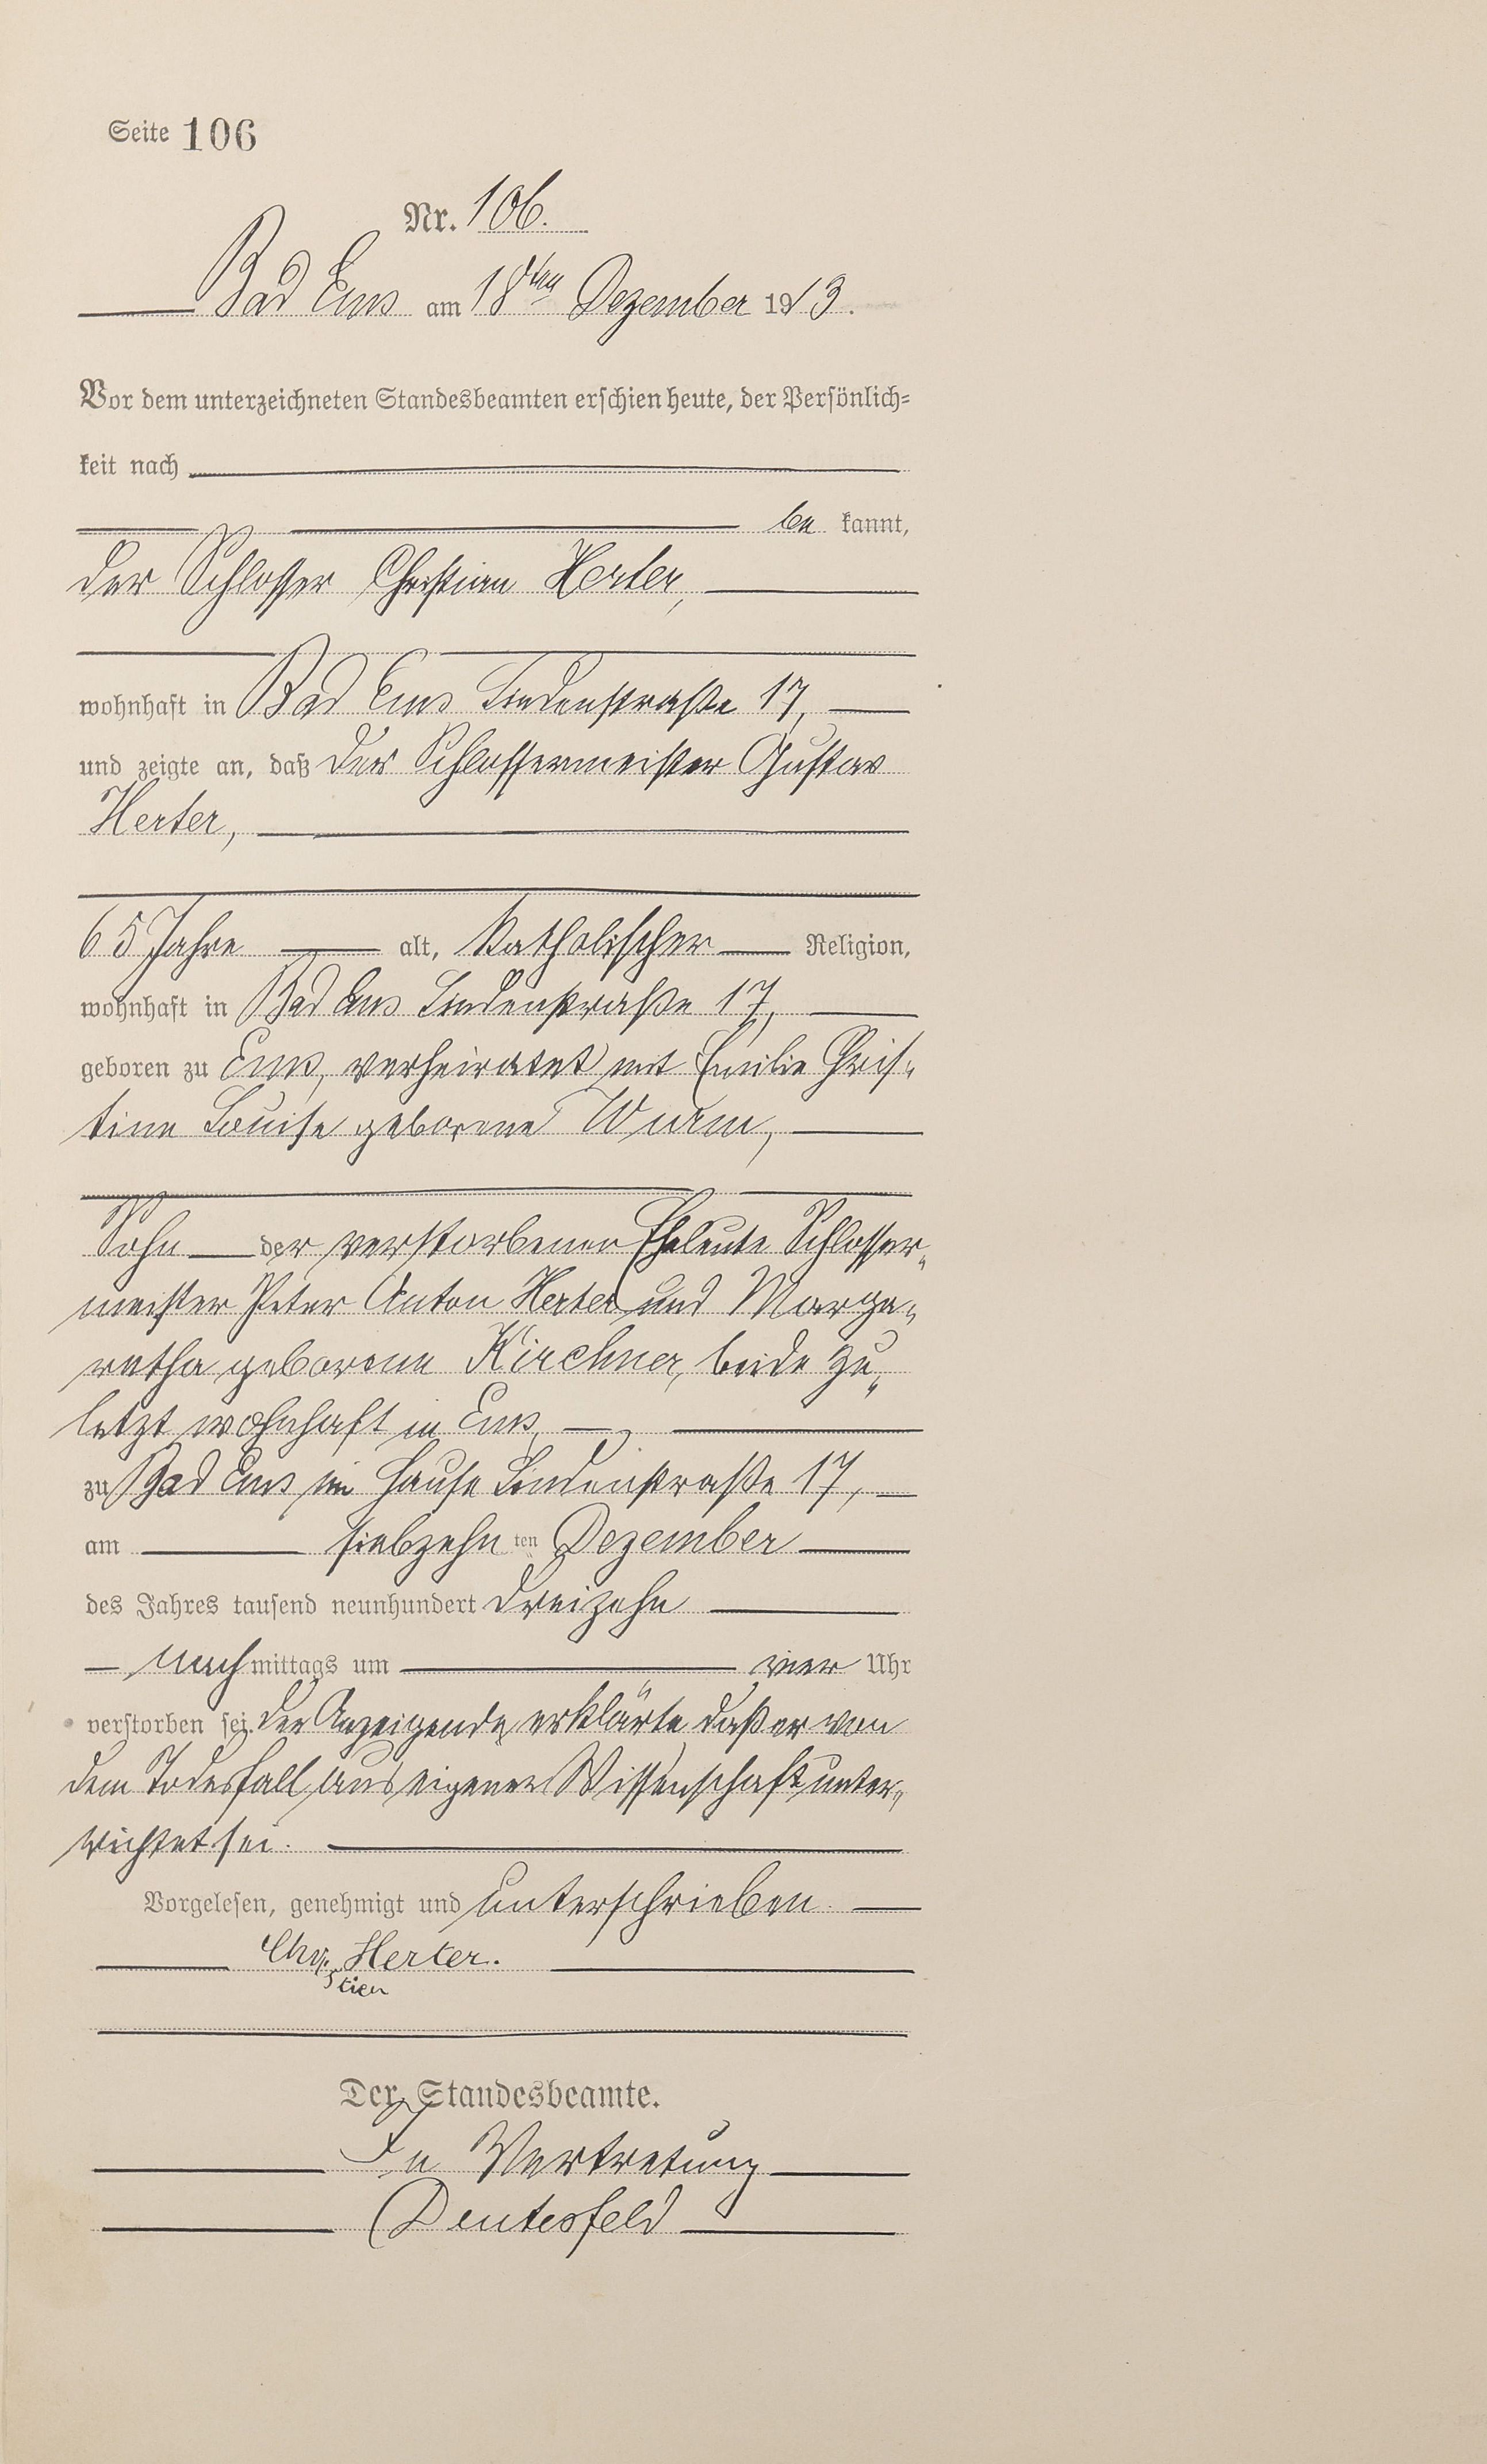 Seite 106
Nr. 106.
Bad Ems am 18ten Dezember 1913.
Vor dem unterzeichneten Standesbeamten erschien heute, der Persönlich=
keit nach
be kannt,
der Schlosser Christian Herter,
wohnhaft in Bad Ems Lindenstraße 17,
und zeigte an, daß der Schlossermeister Gustav
Herter,
65 Jahre alt, katholischer Religion,
wohnhaft in Bad Ems Lindenstraße 17,
geboren zu Ems, verheiratet mit Emilie Chris-
tine Louise geborene Wurm,
Sohn der verstorbenen Eheleute Schlosser-
meister Peter Anton Herter und Marga-
retha geborene Kirchner, beide zu-
letzt wohnhaft in Ems,
zu Bad Ems im Hause Lindenstraße 17,
am siebzehn ten Dezember
des Jahres tausend neunhundert dreizehn
nach mittags um vier Uhr
verstorben sei. Der Anzeigende erklärte, daß er von
dem Todesfall aus eigener Wissenschaft unter-
richtet sei.
Vorgelesen, genehmigt und unterschrieben.
Chr. Herter.
stian
Der Standesbeamte.
In Vertretung